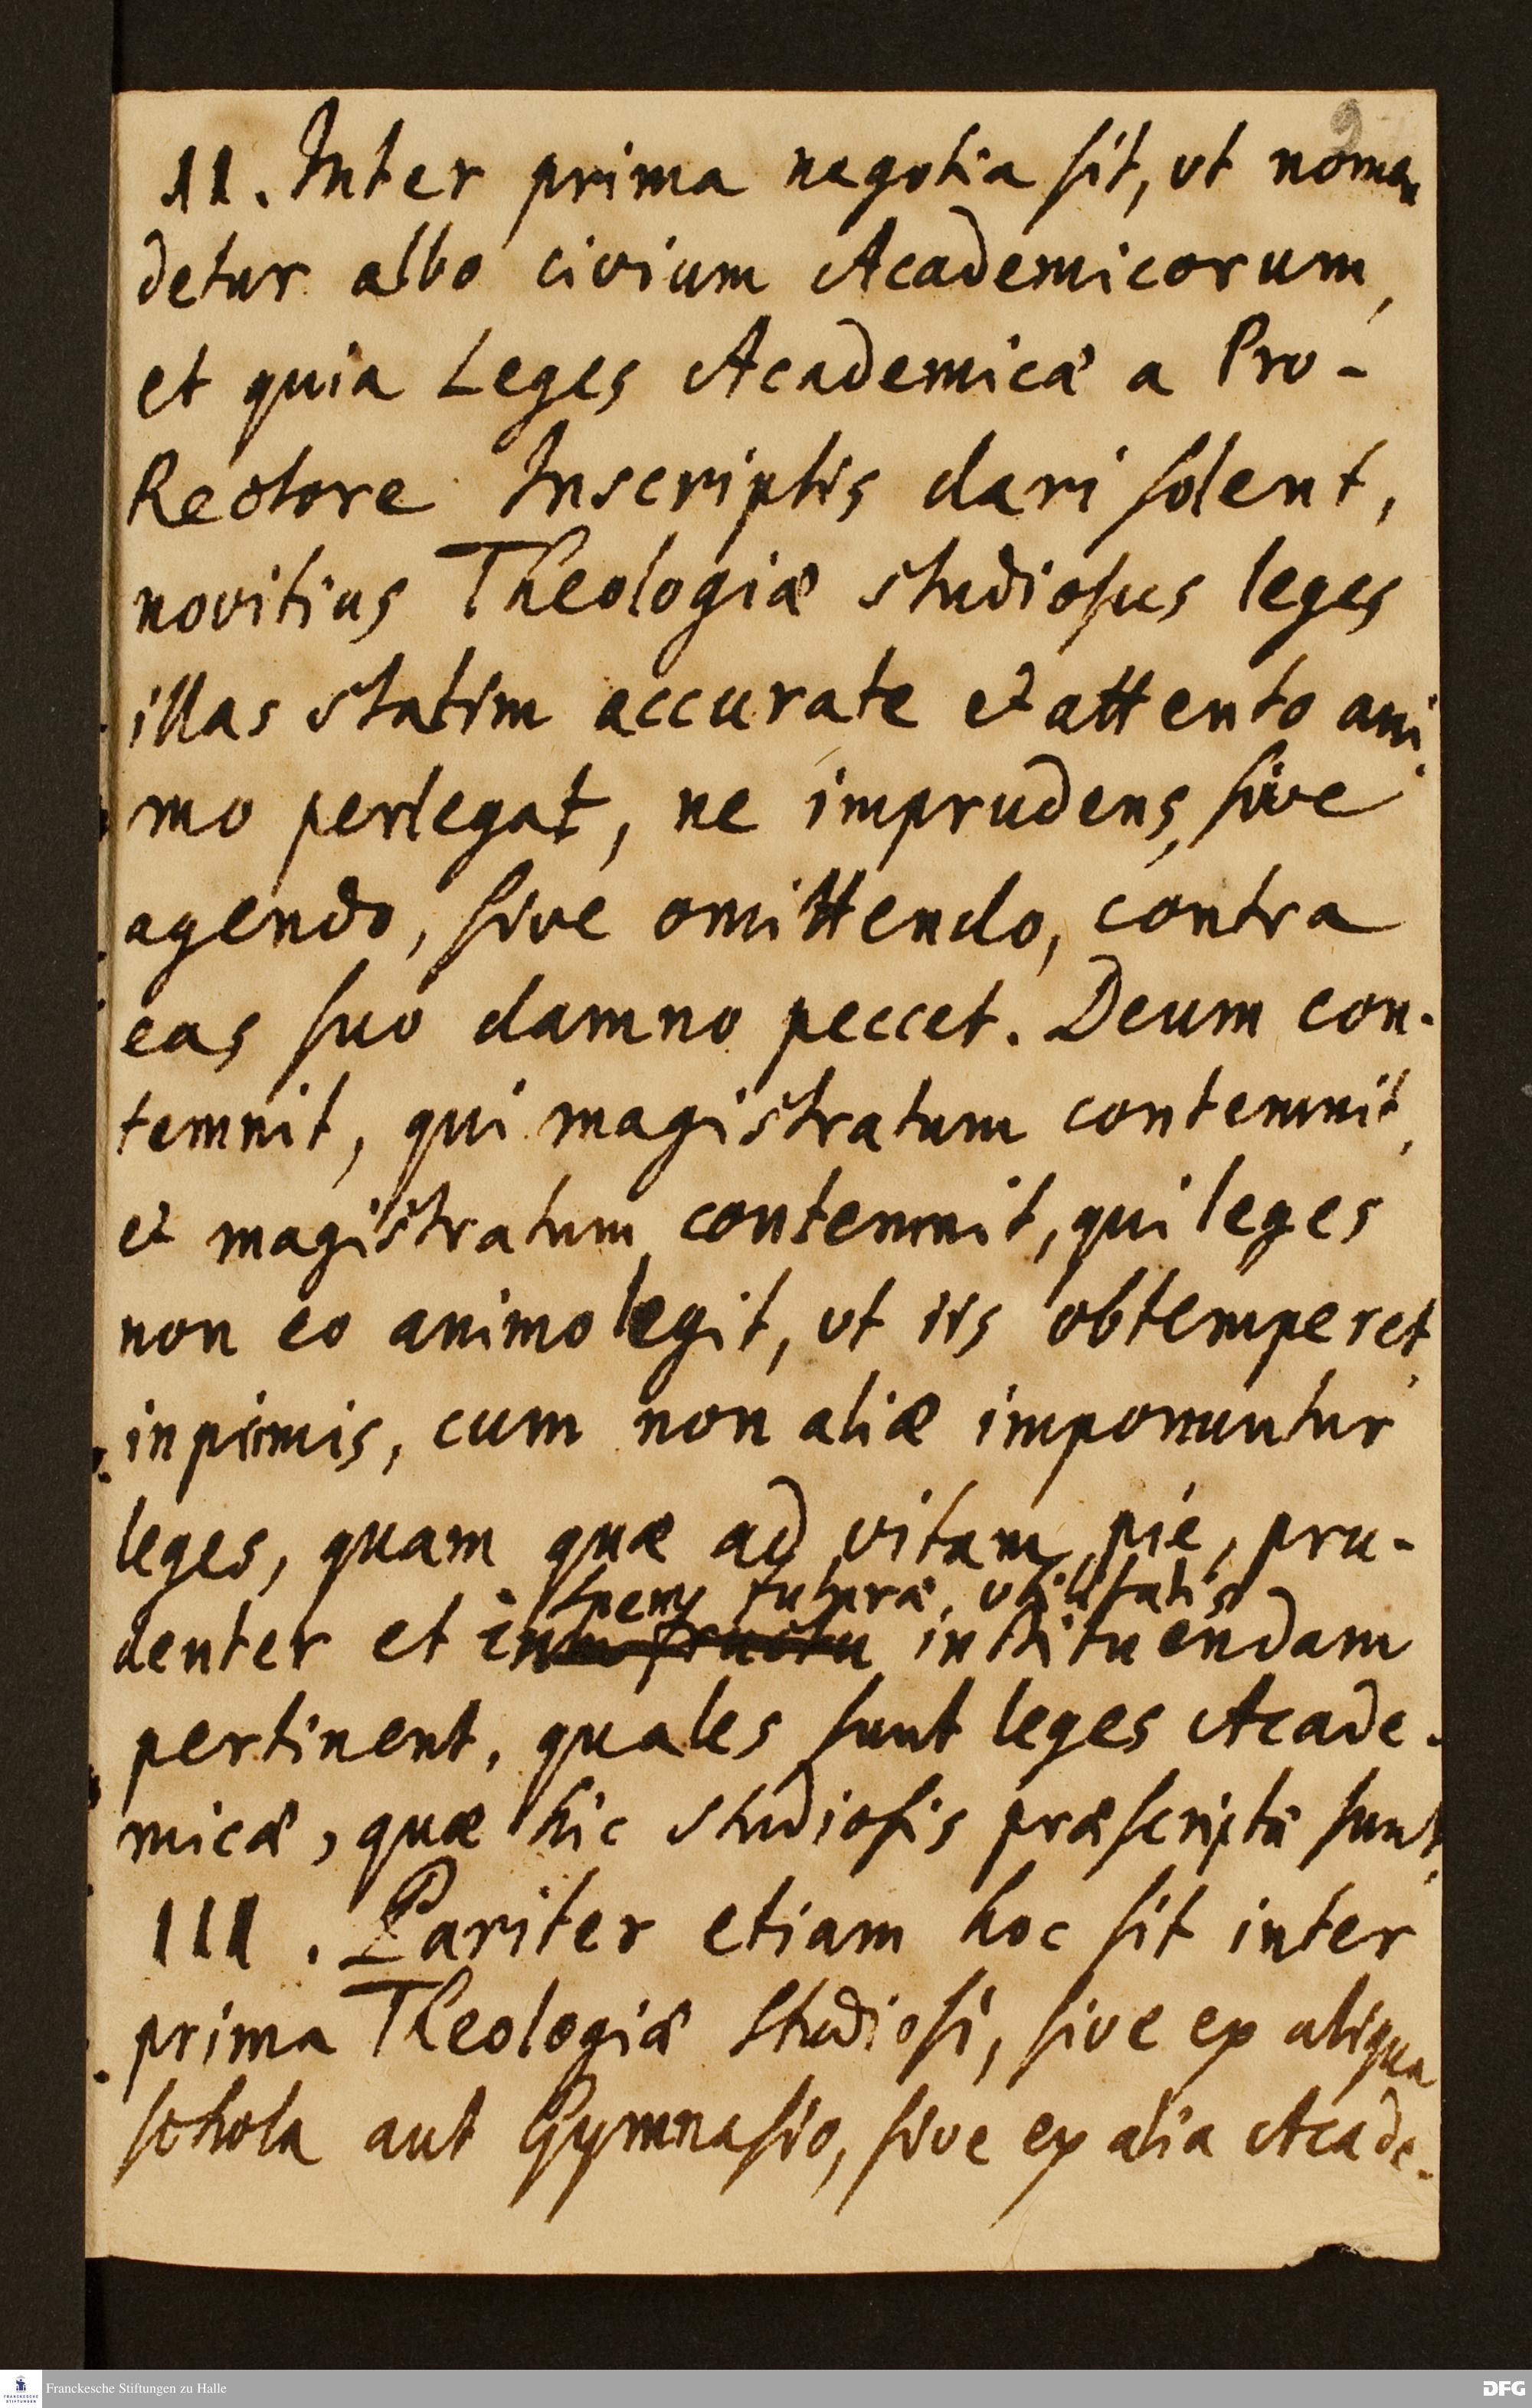 9
II. Inter prima negotia sit, ut nomen
detur albo civium Academicorum,
et quia Leges Academicæ a Pro-
Rectore Inscriptis dari solent,
novitius Theologiæ studiosus leges
illas statim accurate et attento ani
mo perlegat, ne imprudens, sive
agendo, sive omittendo, contra
eas suo damno peccet. Deum con-
temnit, qui magistratum contemnit,
et magistratum contemnit, qui leges
non eo animo legit, ut iis obtemperet,
inprimis, cum non aliæ imponuntur
leges, quam quæ ad vitam pie, pru-
spem futuræ utilitatis
denter et in cum fructu instituendam
pertinent, quales sunt leges Acade-
micæ, quæ hic studiosis præscriptæ sunt.
III. Pariter etiam hoc sit inter
prima Theologiæ Studiosi, sive ex aliqua
schola aut Gymnasio, sive ex alia Acade-
FRANCKESCHE STIFTUNGEN
Franckesche Stiftungen zu Halle
DFG